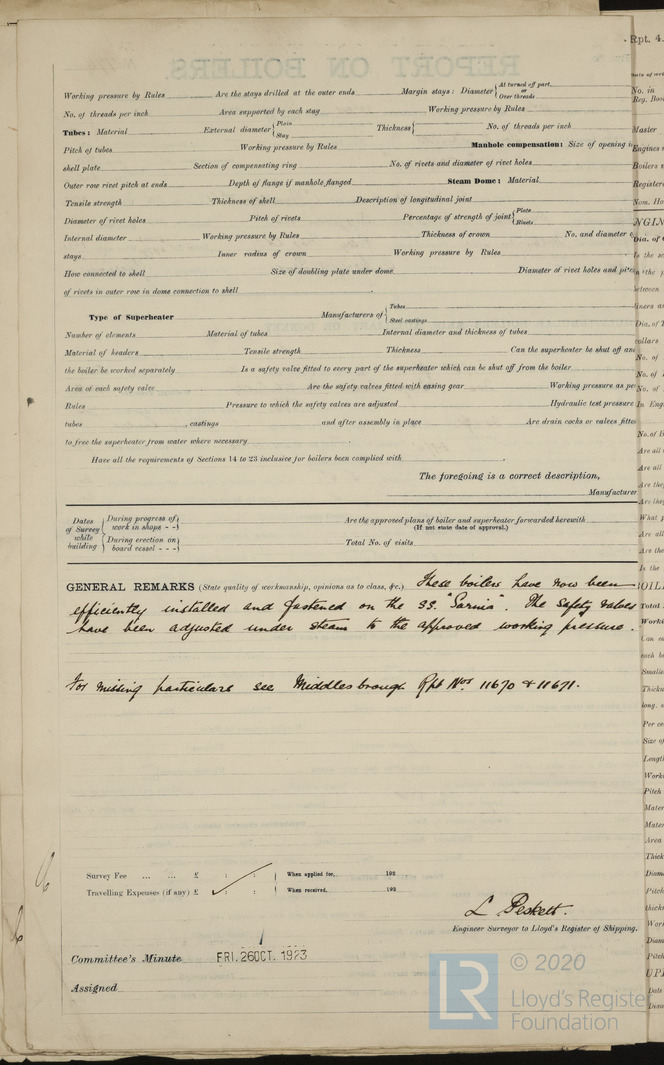 Rpt. 4.
REPORT ON BOILERS.
Working pressure by Rules Are the stays drilled at the outer ends Margin stays: Diameter { At turned off part or Over threads
No. of threads per inch Area supported by each stay Working pressure by Rules
Tubes: Material External diameter { Plain Stay Thickness { No. of threads per inch
Pitch of tubes Working pressure by Rules Manhole compensation: Size of opening
shell plate Section of compensating ring No. of rivets and diameter of rivet holes
Outer row rivet pitch at ends Depth of flange if manhole flanged Steam Dome: Material
Tensile strength Thickness of shell Description of longitudinal joint
Diameter of rivet holes Pitch of rivets Percentage of strength of joint { Plate Rivets
Internal diameter Working pressure by Rules Thickness of crown No. and diameter
stays Inner radius of crown Working pressure by Rules
How connected to shell Size of doubling plate under dome Diameter of rivet holes and
of rivets in outer row in dome connection to shell
Type of Superheater Manufacturers of { Tubes Steel castings
Number of elements Material of tubes Internal diameter and thickness of tubes
Material of headers Tensile strength Thickness Can the superheater be shut off
the boiler be worked separately Is a safety valve fitted to every part of the superheater which can be shut off from the boiler
Area of each safety valve Are the safety valves fitted with easing gear Working pressure as
Rules Pressure to which the safety valves are adjusted Hydraulic test pressure
tubes , castings and after assembly in place Are drain cocks or valves
to free the superheater from water where necessary
Have all the requirements of Sections 14 to 23 inclusive for boilers been complied with
The foregoing is a correct description,
Manufacturer
Dates of Survey while building { During progress of work in shops - - } Are the approved plans of boiler and superheater forwarded herewith
(If not state date of approval.)
{ During erection on board vessel - - - } Total No. of visits
GENERAL REMARKS (State quality of workmanship, opinions as to class, &c.) These boilers have now been
efficiently installed and fastened on the SS. "Sarnia". The Safety valves
have been adjusted under steam to the approved working pressure.
For missing particulars see Middlesbrough Rpt Nos 11670 & 11671.
Survey Fee ... ... £ : : When applied for, 192
Travelling Expenses (if any) £ : : When received, 192
L Peskett.
Engineer Surveyor to Lloyd's Register of Shipping.
Committee's Minute FRI. 26 OCT. 1923
Assigned
LR © 2020
Lloyd's Registe
Foundation